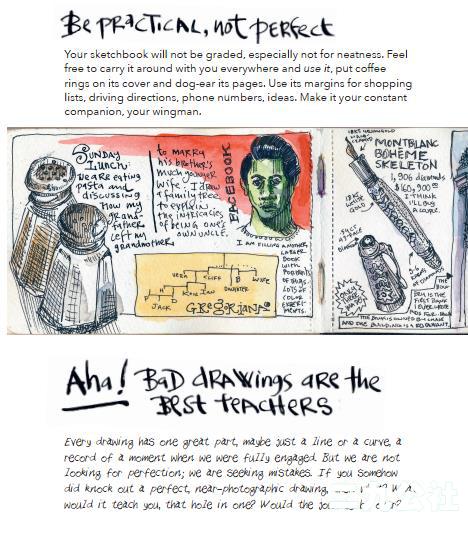 Be PRACTICAL, not PERFECT
Your sketchbook will not be graded, especially not for neatness. Feel
free to carry it around with you everywhere and use it, put coffee
rings on its cover and dog-ear its pages. Use its margins for shopping
lists, driving directions, phone numbers, ideas. Make it your constant
companion, your wingman.
SUNDAY
LUNCH:
WE ARE EATING
PASTA AND
DISCUSSING
HOW MY
GRAND-
FATHER
LEFT MY
GRANDMOTHER
to MARRY
his BROTHER'S
MUCH YOUNGER
WIFE. I DRAW
A FAMILY TREE
TO EXPLAIN
the INTRICACIES
OF BEING ONE'S
OWN UNCLE.
FACEBOOK
I AM FILLING ANOTHER
LARGER
BOOK
WITH
PORTRAITS
LOTS OF
COLOR
EXPERI-
MENTS.
VERA
CLIFF
WIFE
DAUGHTER
JACK
GREGORIANS
MONTBLANC
BOHÈME
SKELETON
1,906 diamonds
$160,900.00
I THINK
I'LL BUY
A COUPLE.
18K
GOLD
THE
IS THE FIRST
BANK
I EVER WROTE
ADS FOR.
AND THE BUILDING IS A RESTAURANT.
Aha! BAD dRAWings ARE the
BEST TEACHERS
Every drawing has one great part, maybe just a line or a curve, a
record of a moment when we were fully engaged. But we are not
looking for perfection; we are seeking mistakes. If you somehow
did knock out a perfect, near-photographic drawing,
would it teach you, that hole in one? Would the